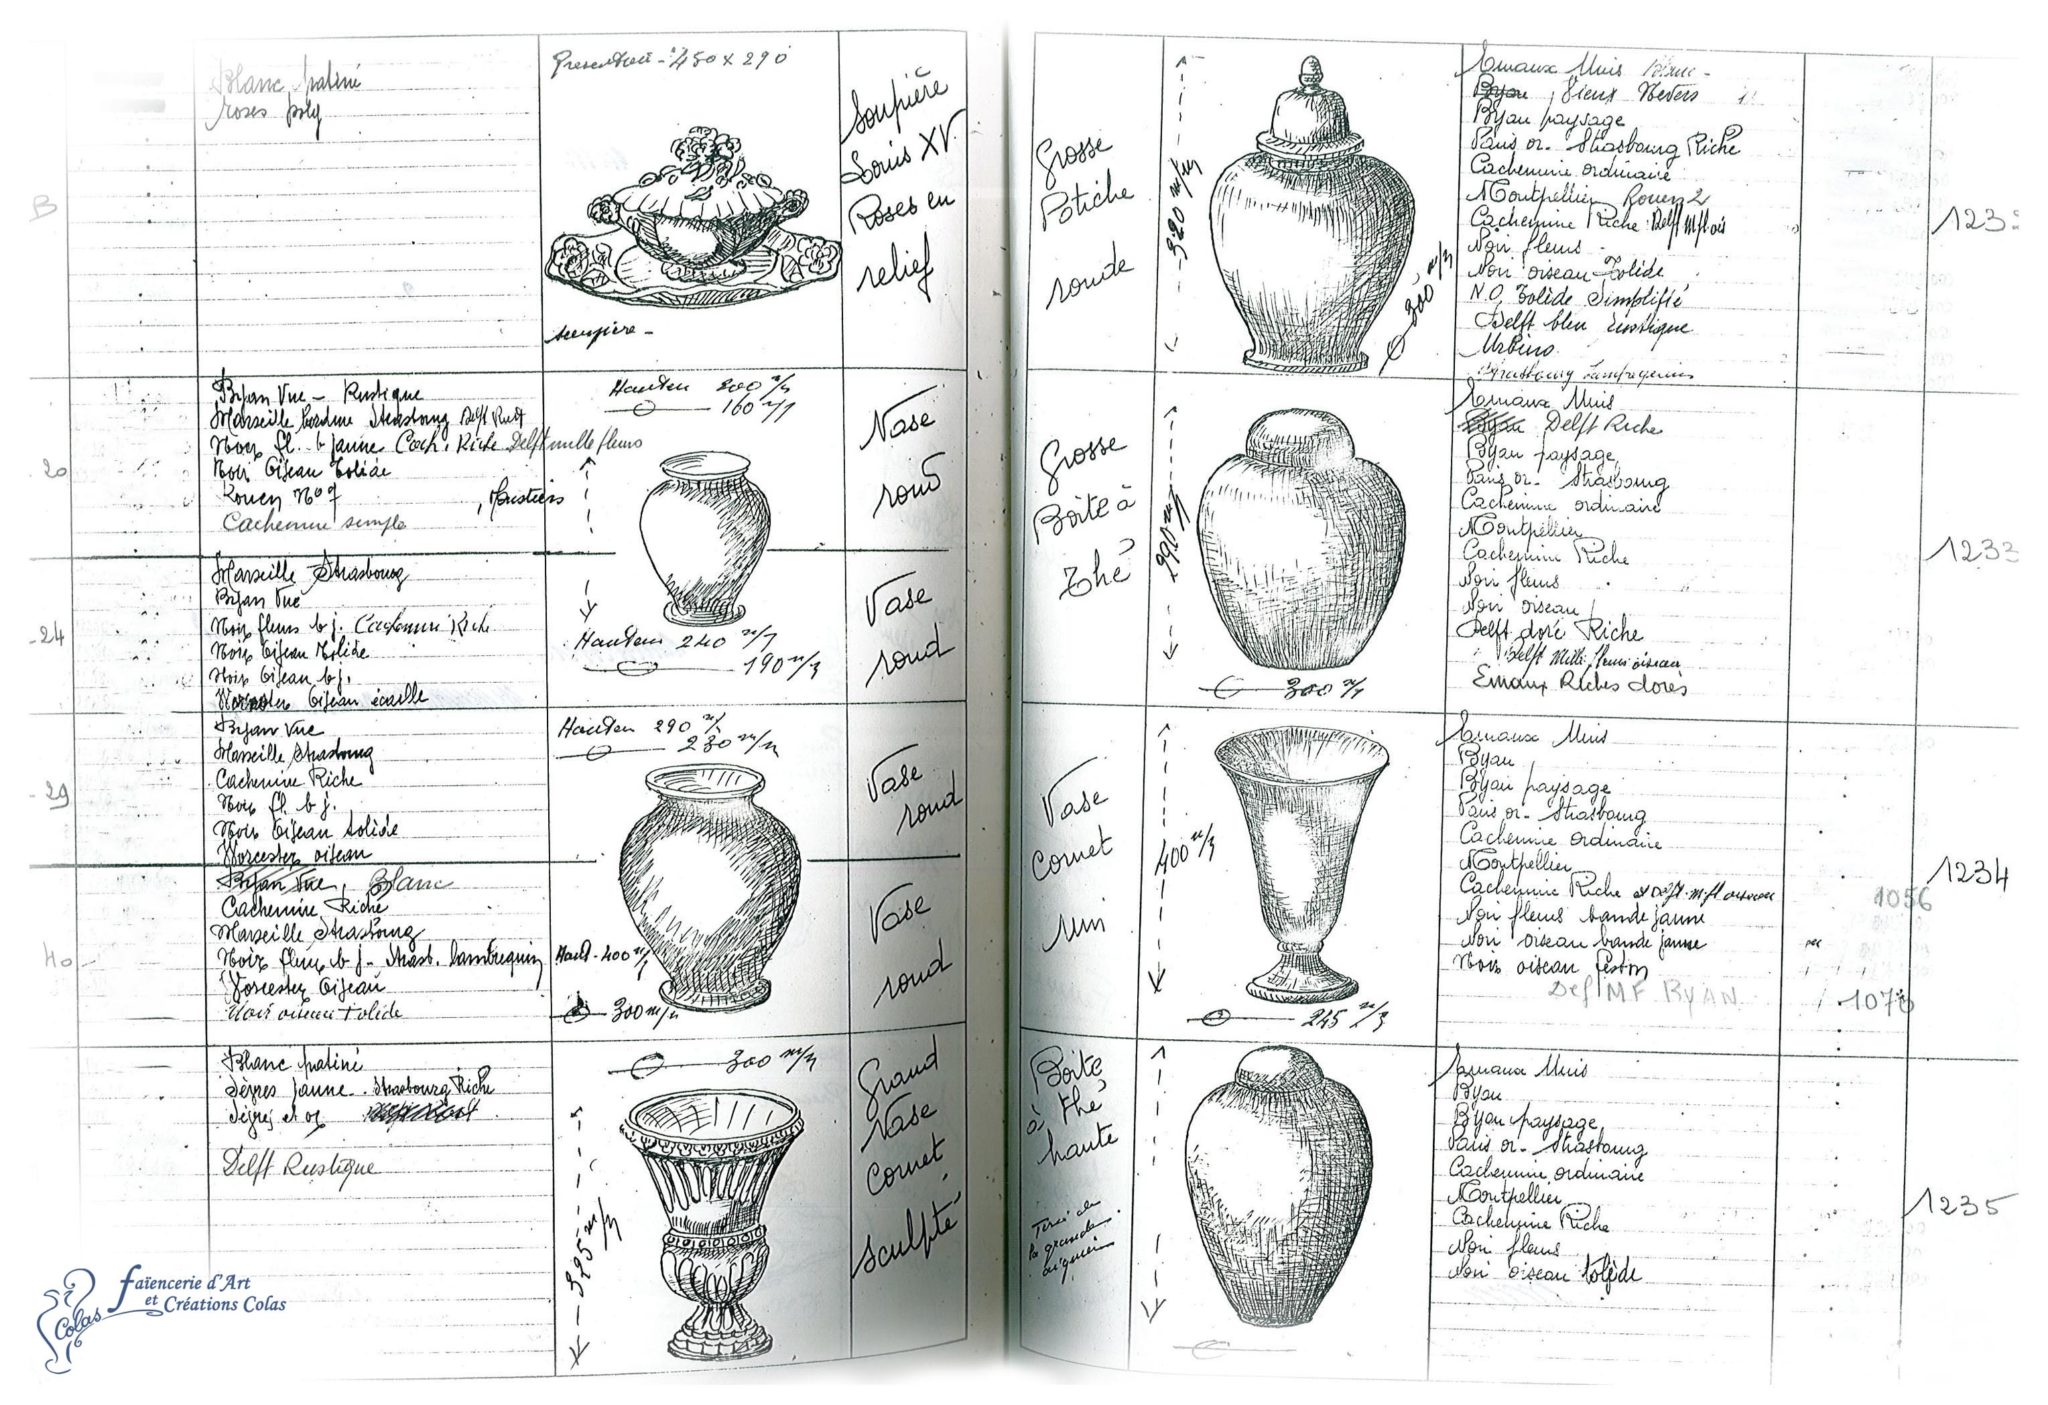 Blanc patiné
roses poly
Presentoir - 450 x 290
soupière -
Soupière
Louis XV.
Roses en
relief
B
Byan Vue - Rustique
Marseille bordure Strasbourg Delft Rust
Noir fl. b jaune Cach. Riche Delft mille fleurs
Noir Oiseau Tolède
Rouen No 7 , Moustiers
Cachemire simple
20
Hauteur 200 m/m
160 m/m
Vase
rond
Marseille Strasbourg
Byan Vue
Noir fleurs b j. Cachemire Riche
Noir Oiseau Tolède
Noir Oiseau b j.
Worcester Oiseau écaille
-24
Hauteur 240 m/m
190 m/m
Vase
rond
Byan Vue
Marseille Strasbourg
Cachemire Riche
Noir fl. b j.
Noir Oiseau tolède
Worcester oiseau
-29
Hauteur 290 m/m
230 m/m
Vase
rond
Byan Vue, Blanc
Cachemire Riche
Marseille Strasbourg
Noir fleurs b j - Strasb. lambrequin
Worcester Oiseau
Noir oiseau tolède
40
Haut - 400 m/m
300 m/m
Vase
rond
Blanc patiné
Sèvres jaune - Strasbourg Riche
Sèvres et or
Delft Rustique
300 m/m
325 m/m
Grand
Vase
Cornet
sculpté
faïencerie d'Art
et Créations Colas
Colas
Grosse
Potiche
ronde
320 m/m
300 m/m
Emaux Unis Blanc -
Byan, Vieux Nevers
Byan paysage
Paris or - Strasbourg Riche
Cachemire ordinaire
Montpellier Rouen 2
Cachemire Riche Delft M fl ois
Noir fleurs
Noir oiseau Tolède
N.O. Tolède Simplifié
Delft bleu Rustique
Urbino
Strasbourg Lambrequins
123
Grosse
Boite à
Thé
290 m/m
300 m/m
Emaux Unis
Byan Delft Riche
Byan paysage
Paris or - Strasbourg
Cachemire ordinaire
Montpellier
Cachemire Riche
Noir fleurs
Noir oiseau
Delft doré Riche
Delft Mille fleurs oiseau
Emaux Riches dorés
1233
Vase
Cornet
uni
400 m/m
245 m/m
Emaux Unis
Byan
Byan paysage
Paris or - Strasbourg
Cachemire ordinaire
Montpellier
Cachemire Riche et Delft m. fl oiseau
Noir fleurs bande jaune
Noir oiseau bande jaune
Noir oiseau feston
Delf MF BYAN
1056
1234
Boite
à thé
haute
Tirée de
la grande
Emaux Unis
Byan
Byan paysage
Paris or - Strasbourg
Cachemire ordinaire
Montpellier
Cachemire Riche
Noir fleurs
Noir oiseau tolède
1235